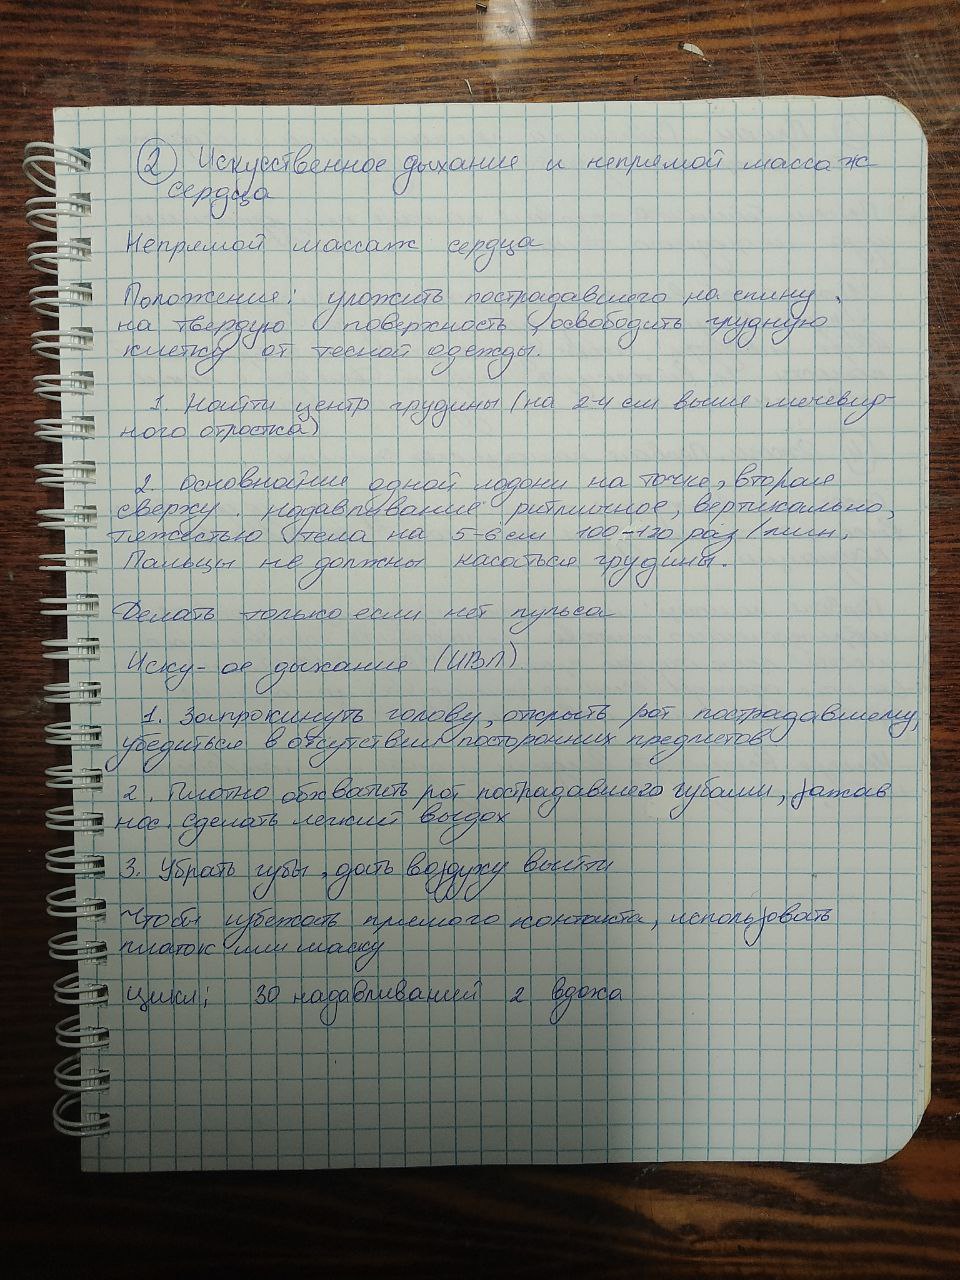 ② Искусственное дыхание и непрямой массаж
сердца
Непрямой массаж сердца
Положение: уложить пострадавшего на спину,
на твердую поверхность, освободить грудную
клетку от тесной одежды.
1. Найти центр грудины (на 2-4 см выше мечевид-
ного отростка)
2. Основание одной ладони на точке, вторая
сверху. Надавливание ритмичное, вертикально,
тяжестью тела на 5-6 см 100-120 раз/мин.
Пальцы не должны касаться грудины.
Делать только если нет пульса
Иску-ое дыхание (ИВЛ)
1. Запрокинуть голову, открыть рот пострадавшему,
убедиться в отсутствии посторонних предметов
2. Плотно обхватить рот пострадавшего губами, зажав
нос, сделать легкий выдох
3. Убрать губы, дать воздуху выйти
Чтобы избежать прямого контакта, использовать
платок или маску
Цикл: 30 надавливаний 2 вдоха